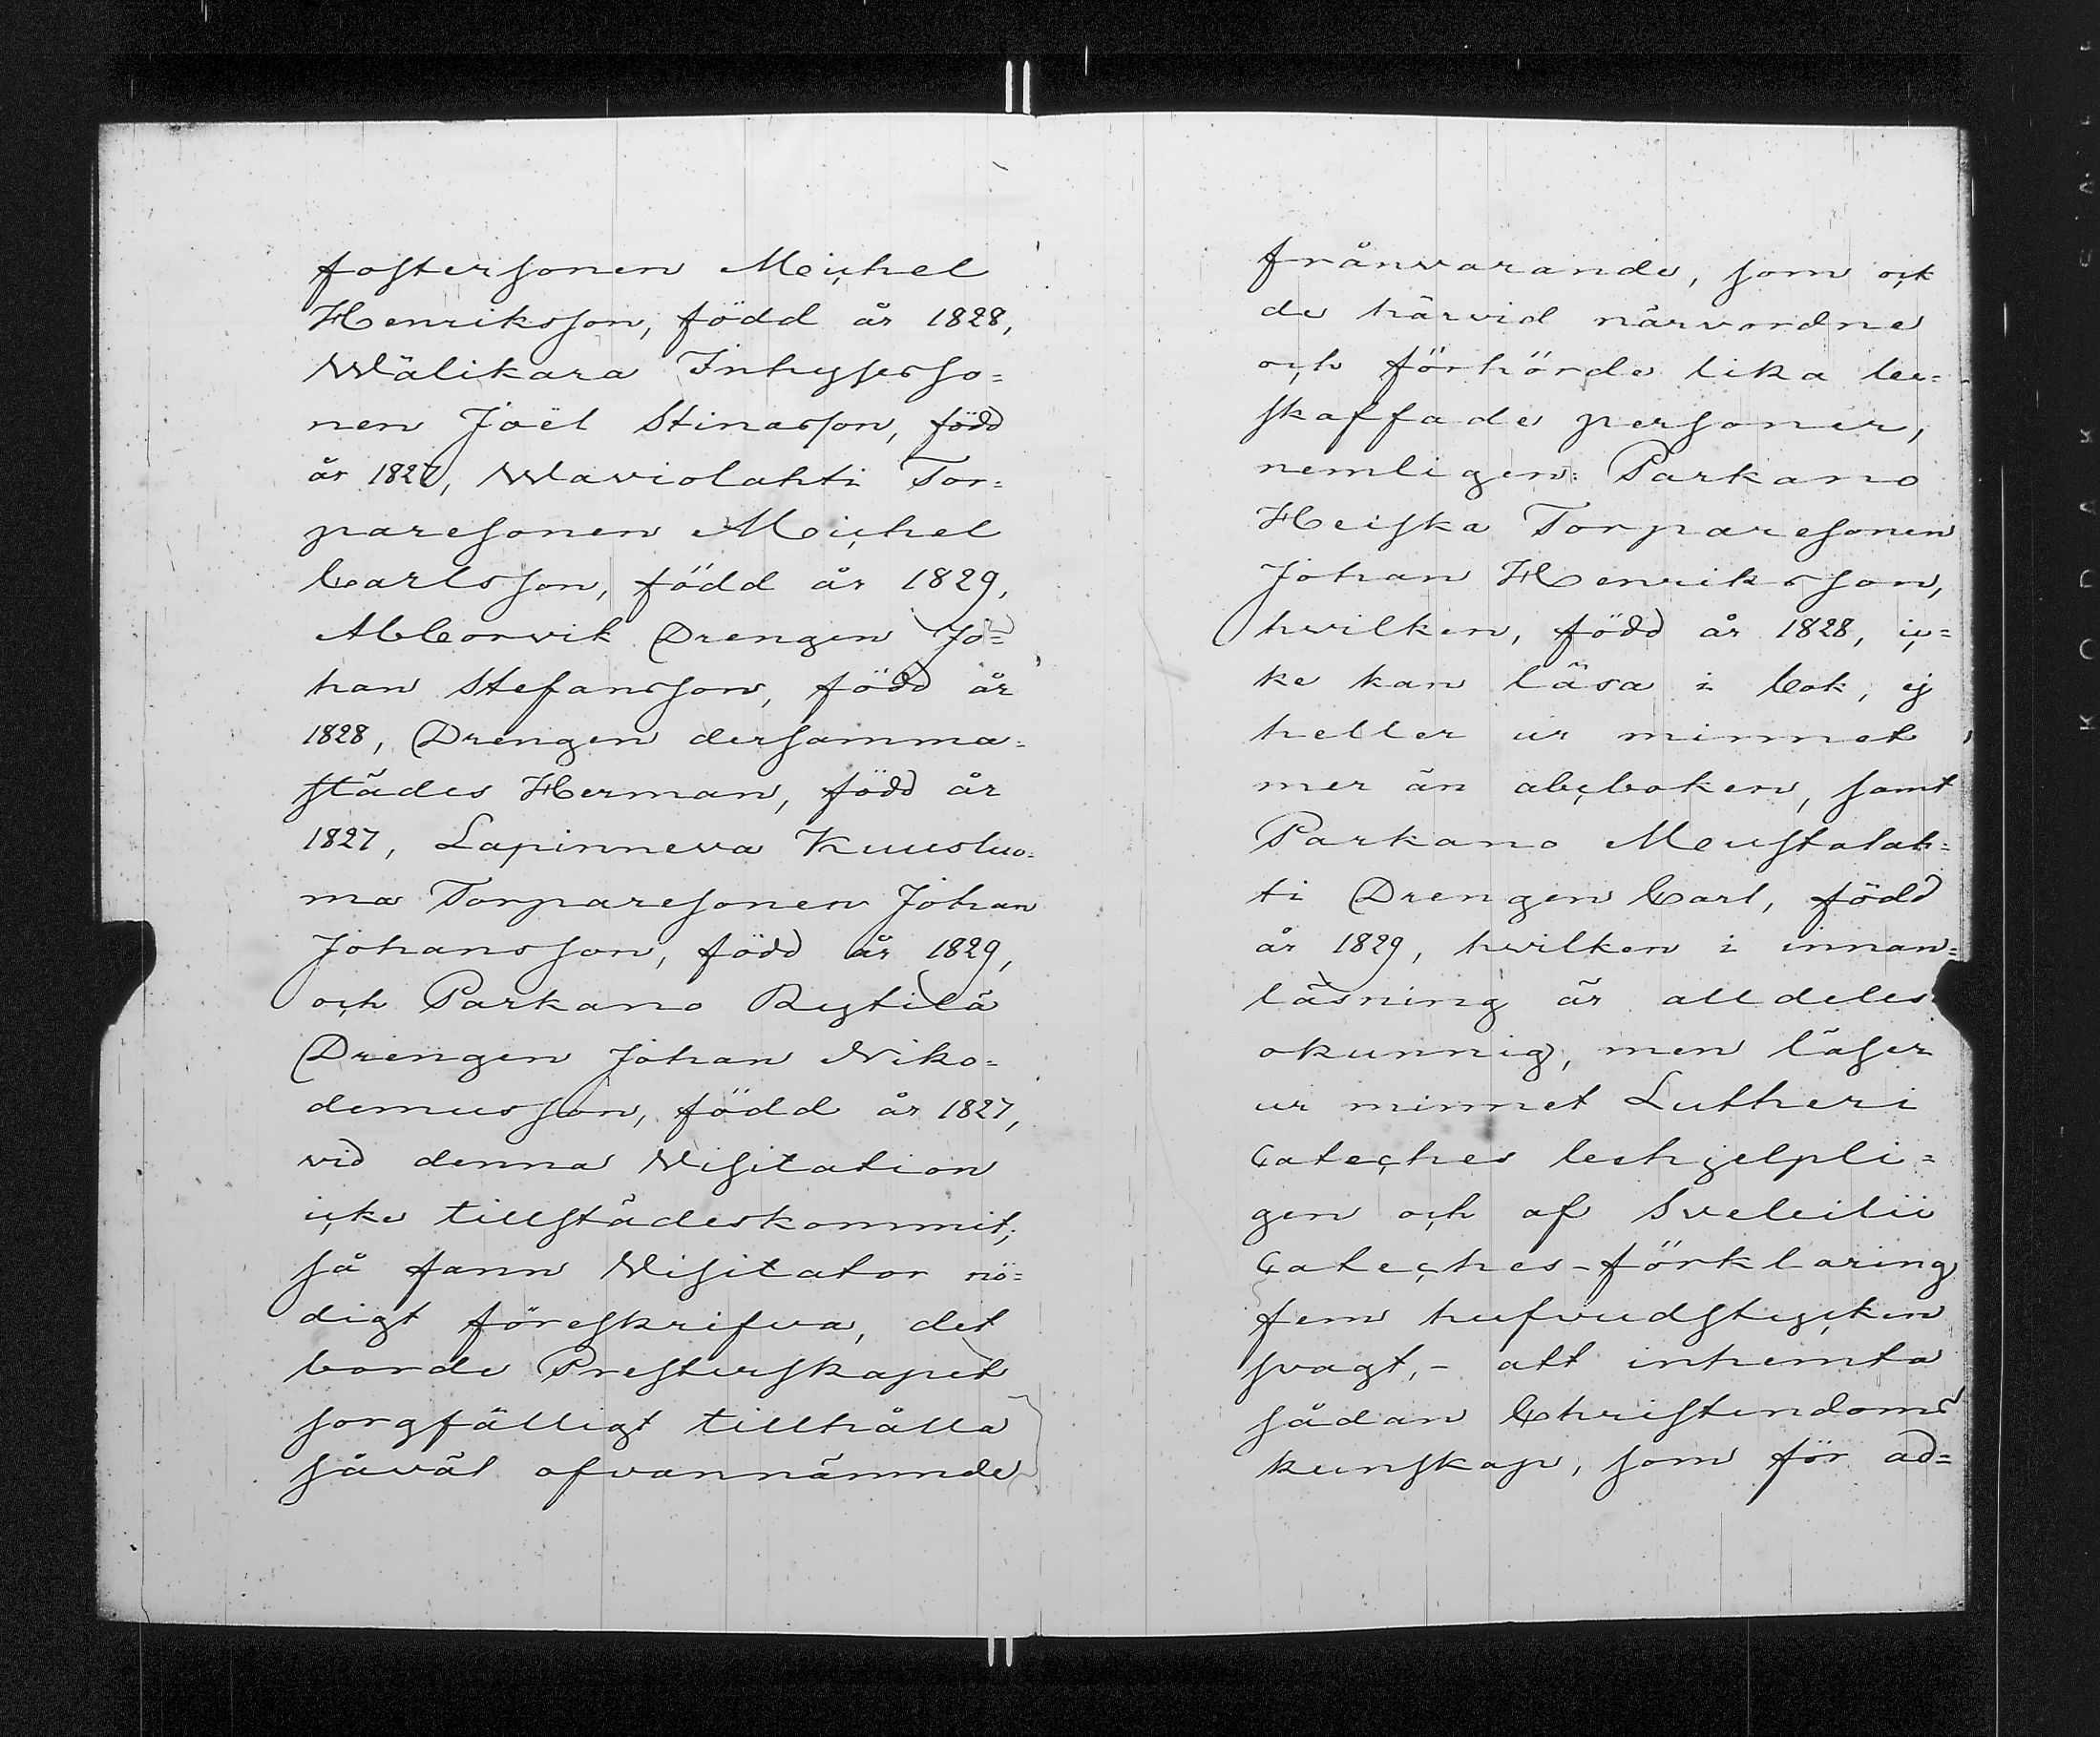 fostersonen Michel
Henriksson, född år 1828,
Wälikara Inhysesso=
nen Joël Stinasson, född
år 1827, Waviolahti Tor=
paresonen Michel
Carlsson, född år 1829,
Abborvik Drengen Jo=
han Stefansson, född år
1828, Drengen dersamma=
städes Herman, född år
1827, Lapinneva Kuusluo=
ma Torparesonen Johan
Johansson, född år 1829,
och Parkano Rytilä
Drengen Johan Niko=
demusson, född år 1827,
vid denna Visitation
icke tillstädeskommit;
så fann Visitator nö=
digt föreskrifva, det
borde Presterskapet
sorgfälligt tillhålla
såväl ofvannämnde
frånvarande, som ock
de härvid närvordne
och förhörde lika be=
skaffade personer,
nemligen: Parkano
Heiska Torparesonen
Johan Henriksson,
hvilken, född år 1828, ic=
ke kan läsa i bok, ej
heller ur minnet
mer än abcboken, samt
Parkano Mustalah=
ti Drengen Carl, född
år 1829, hvilken i innan=
läsning är alldeles
okunnig, men läser
ur minnet Lutheri
Cateches behjelpli=
gen och af Svebilii
Cateches-förklaring
fem hufvudstycken
svagt, - att inhemta
sådan Christendoms
kunskap, som för ad=